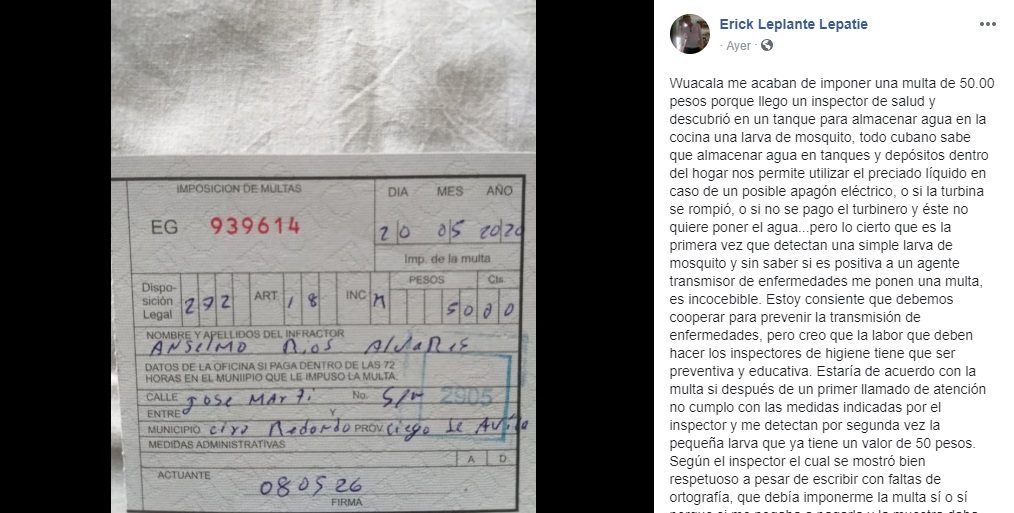 IMPOSICION DE MULTAS
DIA MES AÑO
EG 939614
20 05 2020
Imp. de la multa
Dispo-
sición
Legal
272 ART 18 INC M
PESOS Cts
5000
NOMBRE Y APELLIDOS DEL INFRACTOR
ANSELMO Rios AlvaRIE
DATOS DE LA OFICINA SI PAGA DENTRO DE LAS 72
HORAS EN EL MUNIIPIO QUE LE IMPUSO LA MULTA.
2905
CALLE JOSE MARTI No. S/N
ENTRE Y
MUNICIPIO Ciro Redondo PROV Ciego de Avila
MEDIDAS ADMINISTRATIVAS
A D
ACTUANTE
080526
FIRMA
Erick Leplante Lepatie
· Ayer ·
Wuacala me acaban de imponer una multa de 50.00
pesos porque llego un inspector de salud y
descubrió en un tanque para almacenar agua en la
cocina una larva de mosquito, todo cubano sabe
que almacenar agua en tanques y depósitos dentro
del hogar nos permite utilizar el preciado líquido en
caso de un posible apagón eléctrico, o si la turbina
se rompió, o si no se pago el turbinero y éste no
quiere poner el agua...pero lo cierto que es la
primera vez que detectan una simple larva de
mosquito y sin saber si es positiva a un agente
transmisor de enfermedades me ponen una multa,
es incocebible. Estoy consiente que debemos
cooperar para prevenir la transmisión de
enfermedades, pero creo que la labor que deben
hacer los inspectores de higiene tiene que ser
preventiva y educativa. Estaría de acuerdo con la
multa si después de un primer llamado de atención
no cumplo con las medidas indicadas por el
inspector y me detectan por segunda vez la
pequeña larva que ya tiene un valor de 50 pesos.
Según el inspector el cual se mostró bien
respetuoso a pesar de escribir con faltas de
ortografía, que debía imponerme la multa sí o sí
porque si me negaba a pagarla y la muestra daba